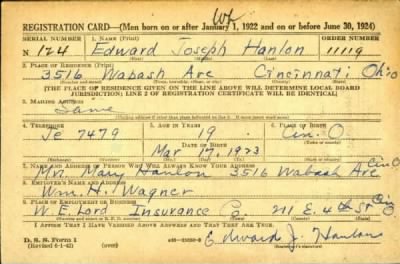 Wh
REGISTRATION CARD—(Men born on or after January 1, 1922 and on or before June 30, 1924)
SERIAL NUMBER 1. NAME (Print) ORDER NUMBER
N 124 Edward Joseph Hanlon 11119
(First) (Middle) (Last)
2. PLACE OF RESIDENCE (Print)
3516 Wabash Ave Cincinnati Ohio
(Number and street) (Town, township, village, or city) (County) (State)
[THE PLACE OF RESIDENCE GIVEN ON THE LINE ABOVE WILL DETERMINE LOCAL BOARD
JURISDICTION; LINE 2 OF REGISTRATION CERTIFICATE WILL BE IDENTICAL]
3. MAILING ADDRESS
Same
4. TELEPHONE 5. AGE IN YEARS 6. PLACE OF BIRTH
Je 7479 19 Cin. O.
DATE OF BIRTH
Mar 17, 1923
7. NAME AND ADDRESS OF PERSON WHO WILL ALWAYS KNOW YOUR ADDRESS
Mrs. Mary Hanlon 3516 Wabash Ave Cin O
8. EMPLOYER'S NAME AND ADDRESS
Wm. H. Wagner
9. PLACE OF EMPLOYMENT OR BUSINESS
W. E. Lord Insurance Co. 211 E. 4th St Cin O
I AFFIRM THAT I HAVE VERIFIED ABOVE ANSWERS AND THAT THEY ARE TRUE.
D. S. S. Form 1
(Revised 6-1-42)
Edward J. Hanlon
(Registrant's signature)